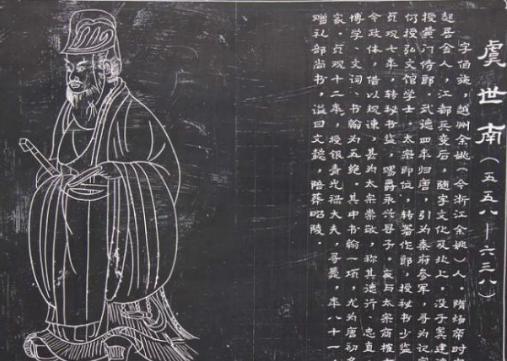 虞世南（五五八—六三八）
字伯施，越州余姚（今浙江余姚）人，隋炀帝时
起居舍人，江都兵变后，随宇文化及北上，没于窦建
授黄门侍郎，武德四年归唐，引为秦府参军，寻为记
何授弘文馆学士，太宗即位，转著作郎，授秘书少监
贞观七年，转秘书监，赐爵永兴县子，与太宗商榷
令政体，借以规谏，甚为太宗崇敬，称其德行、忠直
博学、文词、书翰为五绝。其中书翰一项，尤为唐初名
家。贞观十二年，授银青光禄大夫，寻薨，年八十一
赠礼部尚书，谥曰文懿，陪葬昭陵。